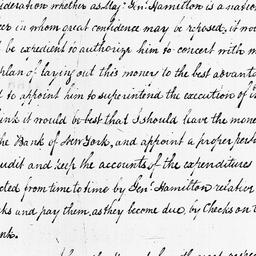 sideration whether as May: Genl. Hamilton is a nation
cer in whom great confidence may be reposed, it wou
be expedient to authorize him to concert with m
plan of laying out this money to the best advanta
to appoint him to superintend the execution of
ink it would be best that I should have the mone
he Bank of New York, and appoint a proper perso
udit and keep the accounts of the expenditures
cted from time to time by Genl. Hamilton relative
ks and pay them, as they become due, by Checks on t
nk.